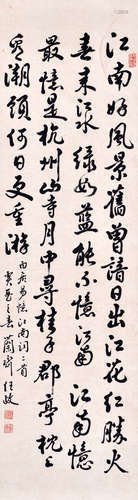 江南好風景舊曾諳日出江花紅勝火
春來江水綠如藍能不憶江南江南憶
最憶是杭州山寺月中尋桂子郡亭枕上
看潮頭何日更重游白居易憶江南詞二首
之春蘭齋任政